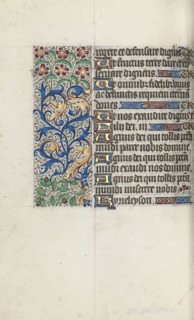 rogare et defensare digne
Ut fructus terre dare et
servare digneris
Ut omnibus fidelibus
defunctis requiem eterna
dones
Ut nos exaudire digne
fili dei
Agnus dei qui tollis peccata
mundi parce nobis domine
Agnus dei qui tollis
mundi exaudi nos domine
Agnus dei qui tollis
mundi miserere nobis
Kyrieleyson